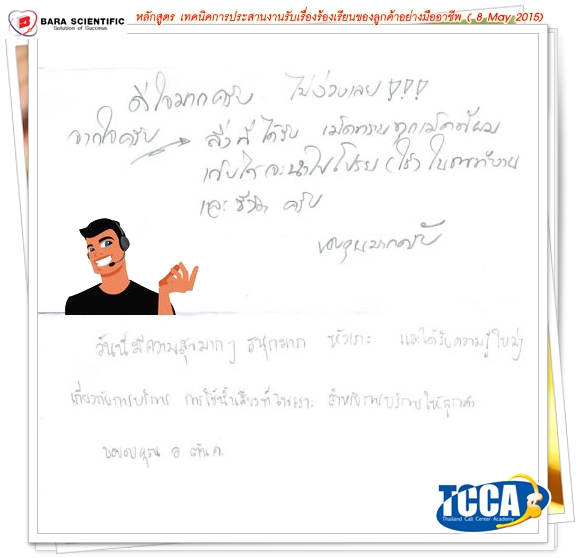 BARA SCIENTIFIC
Solution of Success
หลักสูตร เทคนิคการประสานงานรับเรื่องร้องเรียนของลูกค้าอย่างมืออาชีพ ( 8 May 2015)
ดีใจมากครับ ไม่ง่วงเลย !!!
จากใจครับ → สิ่งที่ได้รับ เม็ดทรายทุกเม็ดที่ผม
เก็บได้จะนำไปโปรย (ใช้) ในการทำงาน
และชีวิต ครับ
ขอบคุณมากครับ
วันนี้มีความสุขมากๆ สนุกมาก หัวเราะ และได้รับความรู้ใหม่ๆ
เกี่ยวกับการบริการ การใช้น้ำเสียงที่ไพเราะ สำหรับการบริการให้ลูกค้า
ขอบคุณ อ
TCCA
Thailand Call Center Academy